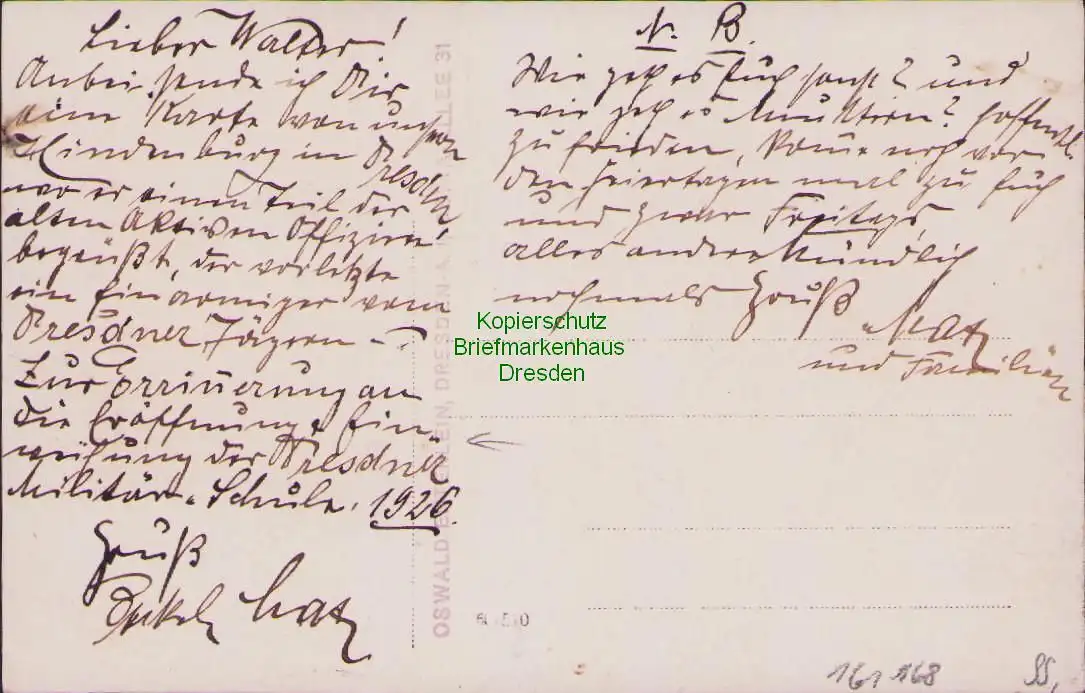 Lieber Walter!
Anbei sende ich Dir
eine Karte von unsern
Hindenburg in Dresden
wo er einen Teil der
alten Aktiven Offiziere
begrüßt, der vorletzte
ein Einarmiger vom
Dresdner Jägern
Zur Erinnerung an
die Eröffnung & Ein-
weihung der Dresdner
Militär-Schule. 1926.
Gruß
Onkel Matz
N. B.
Wie geht es Euch sonst? und
wie geht es Muttern? hoffentl.
zufrieden, komme noch vor
den Feiertagen mal zu Euch
und zwar Freitags,
alles andere Mündlich
nochmals Gruß
Matz
und Familie
OSWALD DRESDEN ALLEE 31
Kopierschutz
Briefmarkenhaus
Dresden
161 168